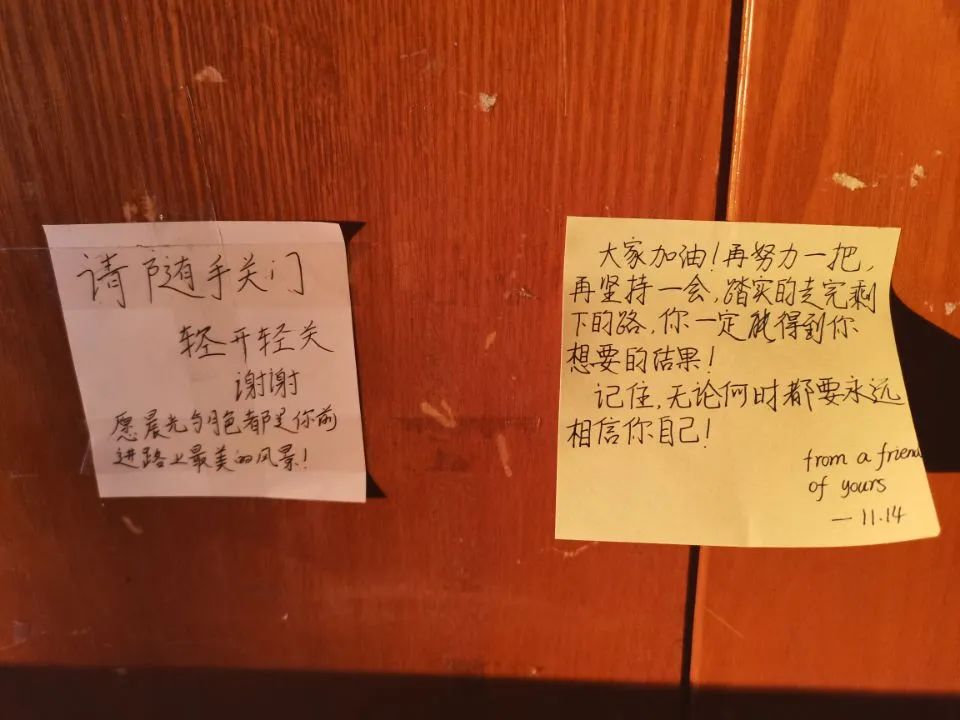 请随手关门
轻开轻关
谢谢
愿晨光与月色都是你前
进路上最美的风景!
大家加油!再努力一把,
再坚持一会,踏实的走完剩
下的路,你一定能得到你
想要的结果!
记住,无论何时都要永远
相信你自己!
from a friend
of yours
— 11.14